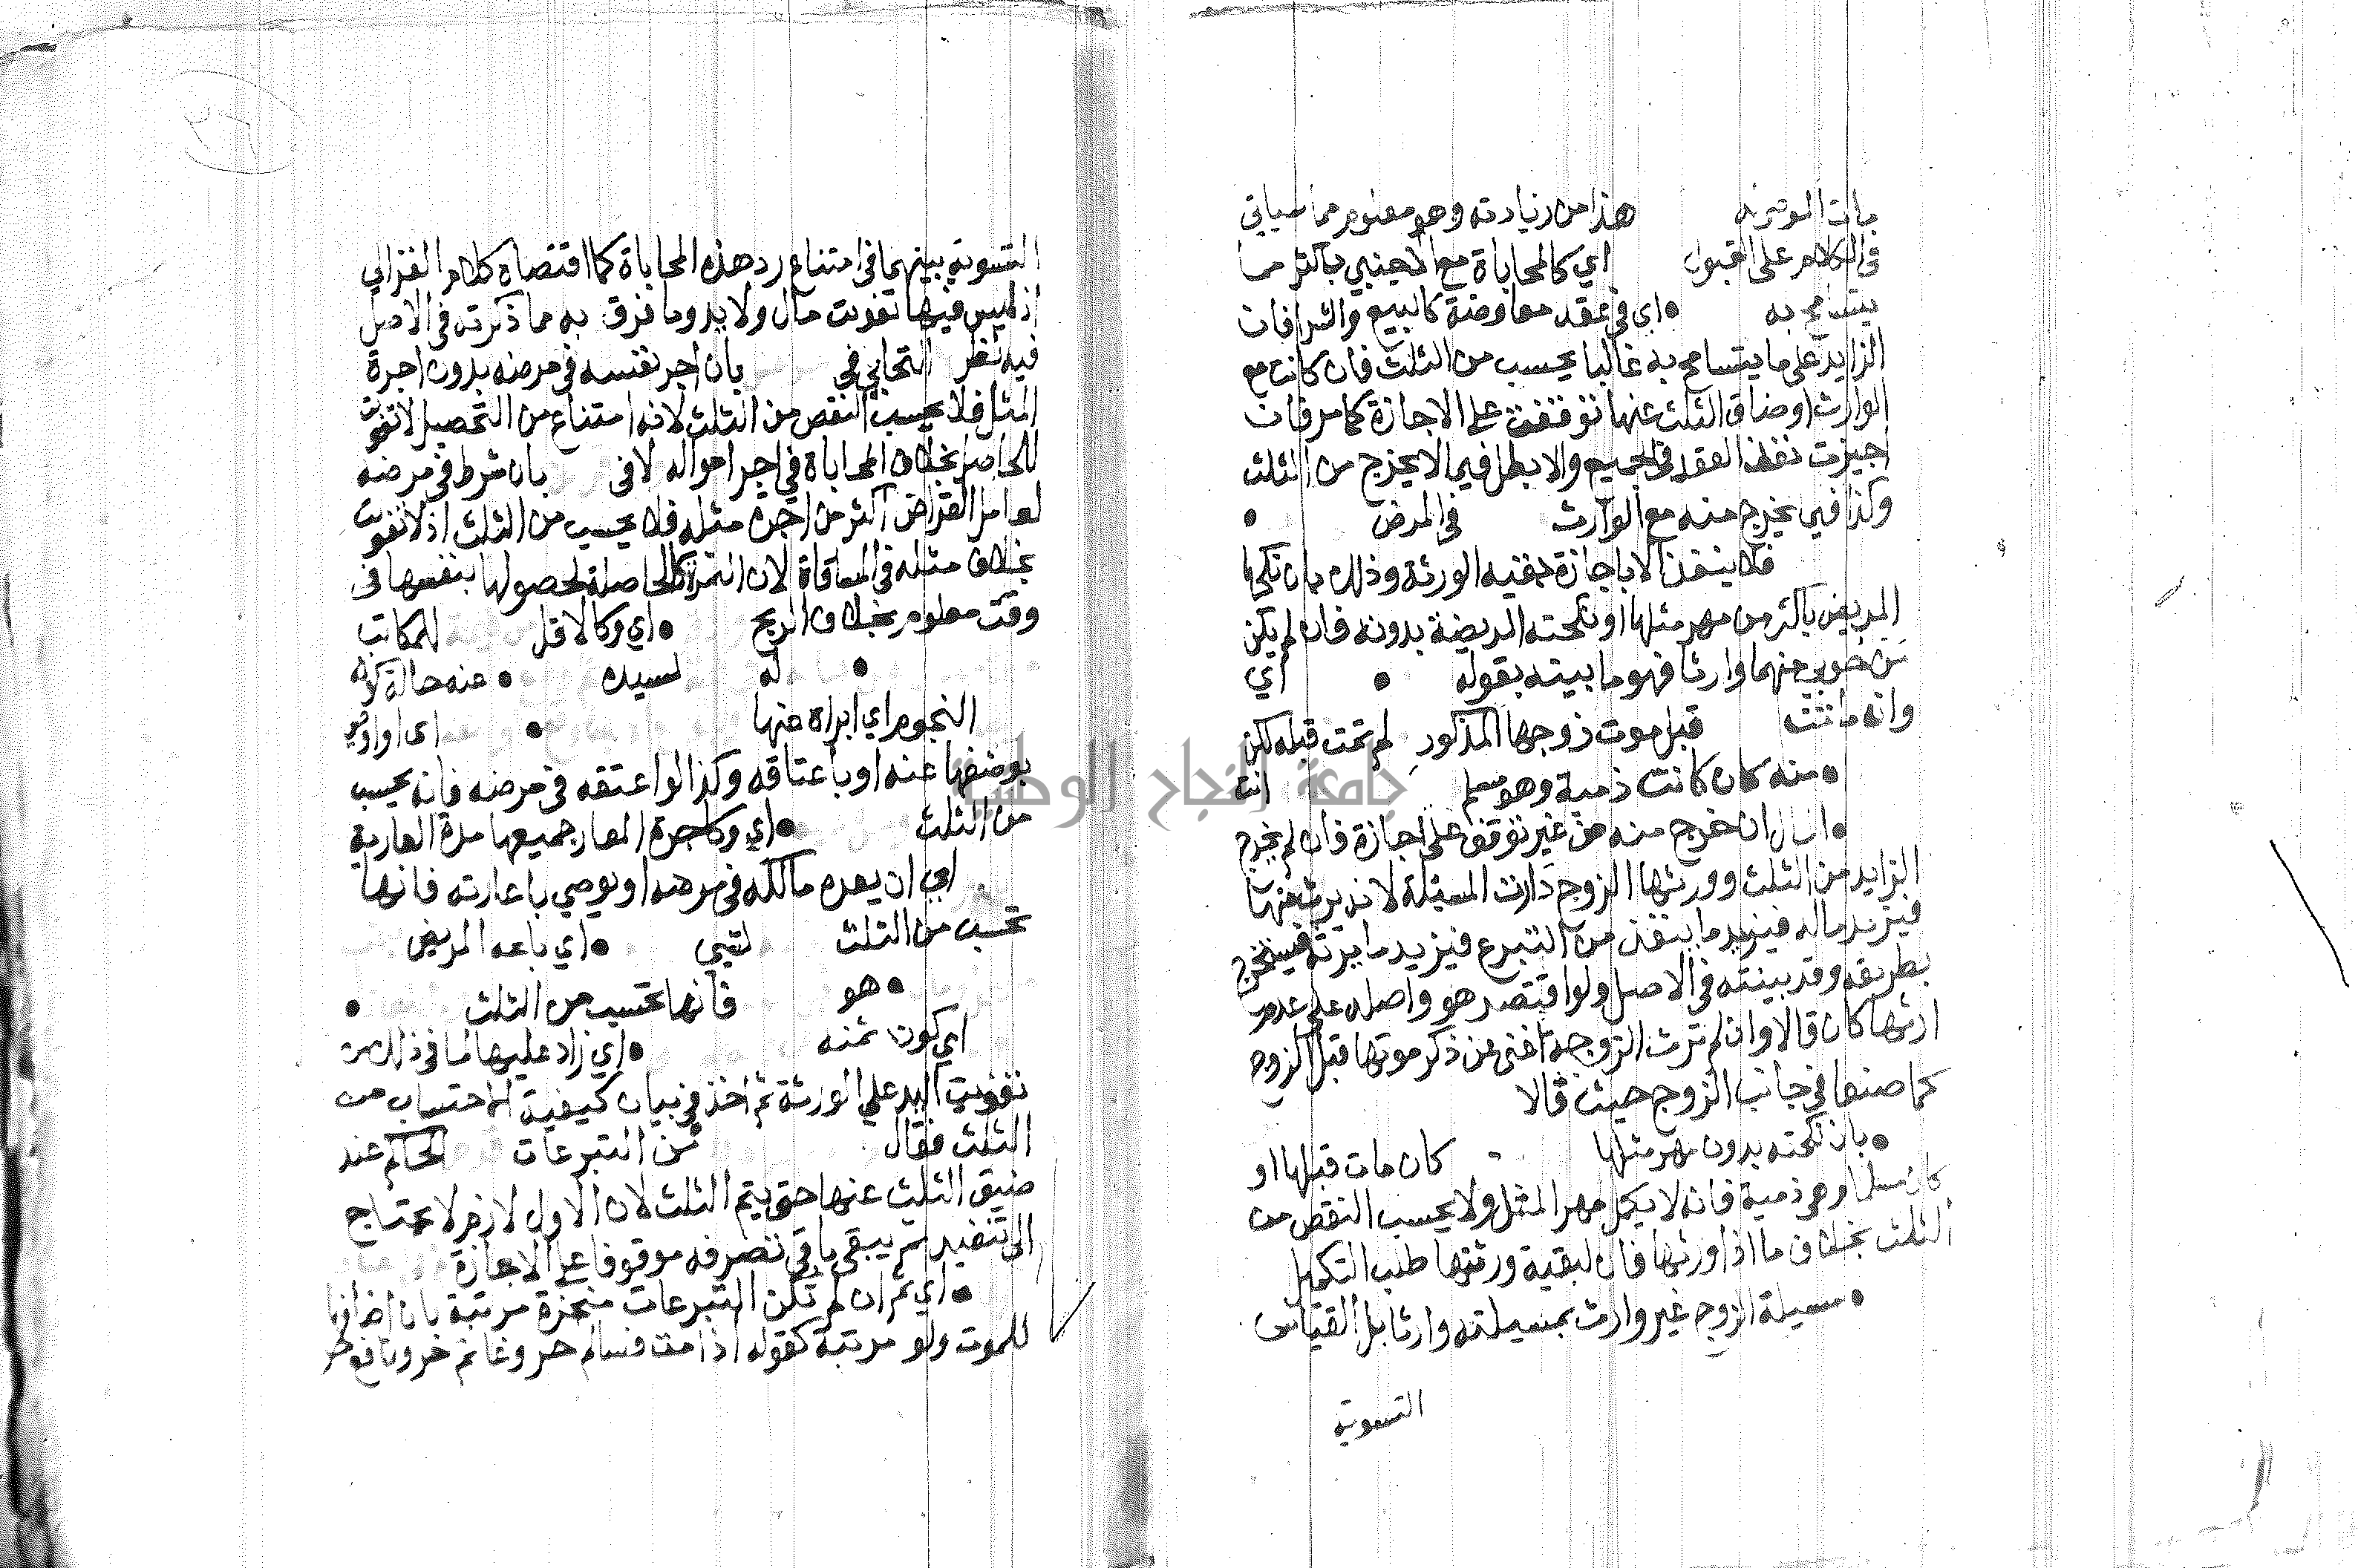 هذا من زيادته وهو معلوم مما سياتي
في الكلام على القبول اي كالمحاباة مع الاجنبي باكثر مما
يتسامح به اي في عقد معاوضة كالبيع والشرا فان
الزايد على ما يتسامح به غالبا يحسب من الثلث فان كانت مع
الوارث او ضاق الثلث عنها توقفت على الاجازة كما مر فان
اجيزت نفذ العقد في الجميع والا بطل فيما لا يخرج من الثلث
وكذا فيما يخرج منه مع الوارث في المرض
فلا ينفذ الا باجازة بقية الورثة وذلك بان نكحها
المريض باكثر من مهر مثلها او نكحته المريضة بدونه فان لم يكن
من حوبي منهما وارثا فهو ما بينه بقوله اي
وانه ماتت قبل موت زوجها المذكور لم تمت قبله لكن
منه كان كانت ذمية وهو مسلم
ان خرج منه من غير توقف على اجازة فان لم يخرج
الزايد من الثلث وورثها الزوج دارت المسئلة لانه يرث منها
فيزيد ماله فيزيد ما ينفذ من التبرع فيزيد ما يرثه فيستخرج
بطريقه وقد بينته في الاصل ولو اقتصر هو واصله على عدم
ارثها كان قالا وان لم ترث الزوجة اغنى عن ذكر موتها قبل الزوج
كما صنعا في جانب الزوج حيث قالا
بان نكحته بدون مهر مثلها كان مات قبلها او
كان مسلما وهي ذمية فانه لا يكمل مهر المثل ولا يحسب النقص من
الثلث بخلاف ما اذا ورثها فان لبقية ورثتها طلب التكميل
مسيلة الزوج غير وارث بمسيلته وارثا بل القياس
التسوية
التسوية بينهما في امتناع رد هذه المحاباة كما اقتضاه كلام الغزالي
اذ ليس فيها تفويت مال ولا يد وما فرق به مما ذكرته في الاصل
فيه نظر التحابي في بان اجر نفسه في مرضه بدون اجرة
المثل فلا يحسب النقص من الثلث لانه امتناع من التحصيل لا تفويت
للحاصل بخلاف المحاباة في اجير امواله لا في بان شرط في مرضه
لعامل القراض اكثر من اجرة مثله فلا يحسب من الثلث اذ لا تفويت
بخلاف مثله في المساقاة لان الثمرة كالحاصلة لحصولها بنفسها في
وقت معلوم بخلاف الربح اي وكالاقل للمكاتب
له لسيده عنه حالة كونه
النجوم اي ابراه منها اي او اوصى
بوضعها عنه او باعتاقه وكذا لو اعتقه في مرضه فانه يحسب
من الثلث اي وكاجرة المعار جميعها مدة العارية
اي ان يعيره مالكه في مرضه او يوصي باعارته فانها
تحسب من الثلث اي باعه المريض
هو فانها تحتسب من الثلث
اي كون ثمنه اي زاد عليها لما في ذلك من
تفويت اليد على الورثة ثم اخذ في بيان كيفية الاحتساب من
الثلث فقال من التبرعات الحاكم عند
ضيق الثلث عنها حتى يتم الثلث لان الاول لازم لا يحتاج
الى تنفيذ ثم يبقى باقي تصرفه موقوفا على الاجازة
اي ثم ان لم تكن التبرعات منجزة مرتبة بان اضافها
للموت ولو مرتبة كقوله اذا مت فسالم حر وغانم حر ونافع حر